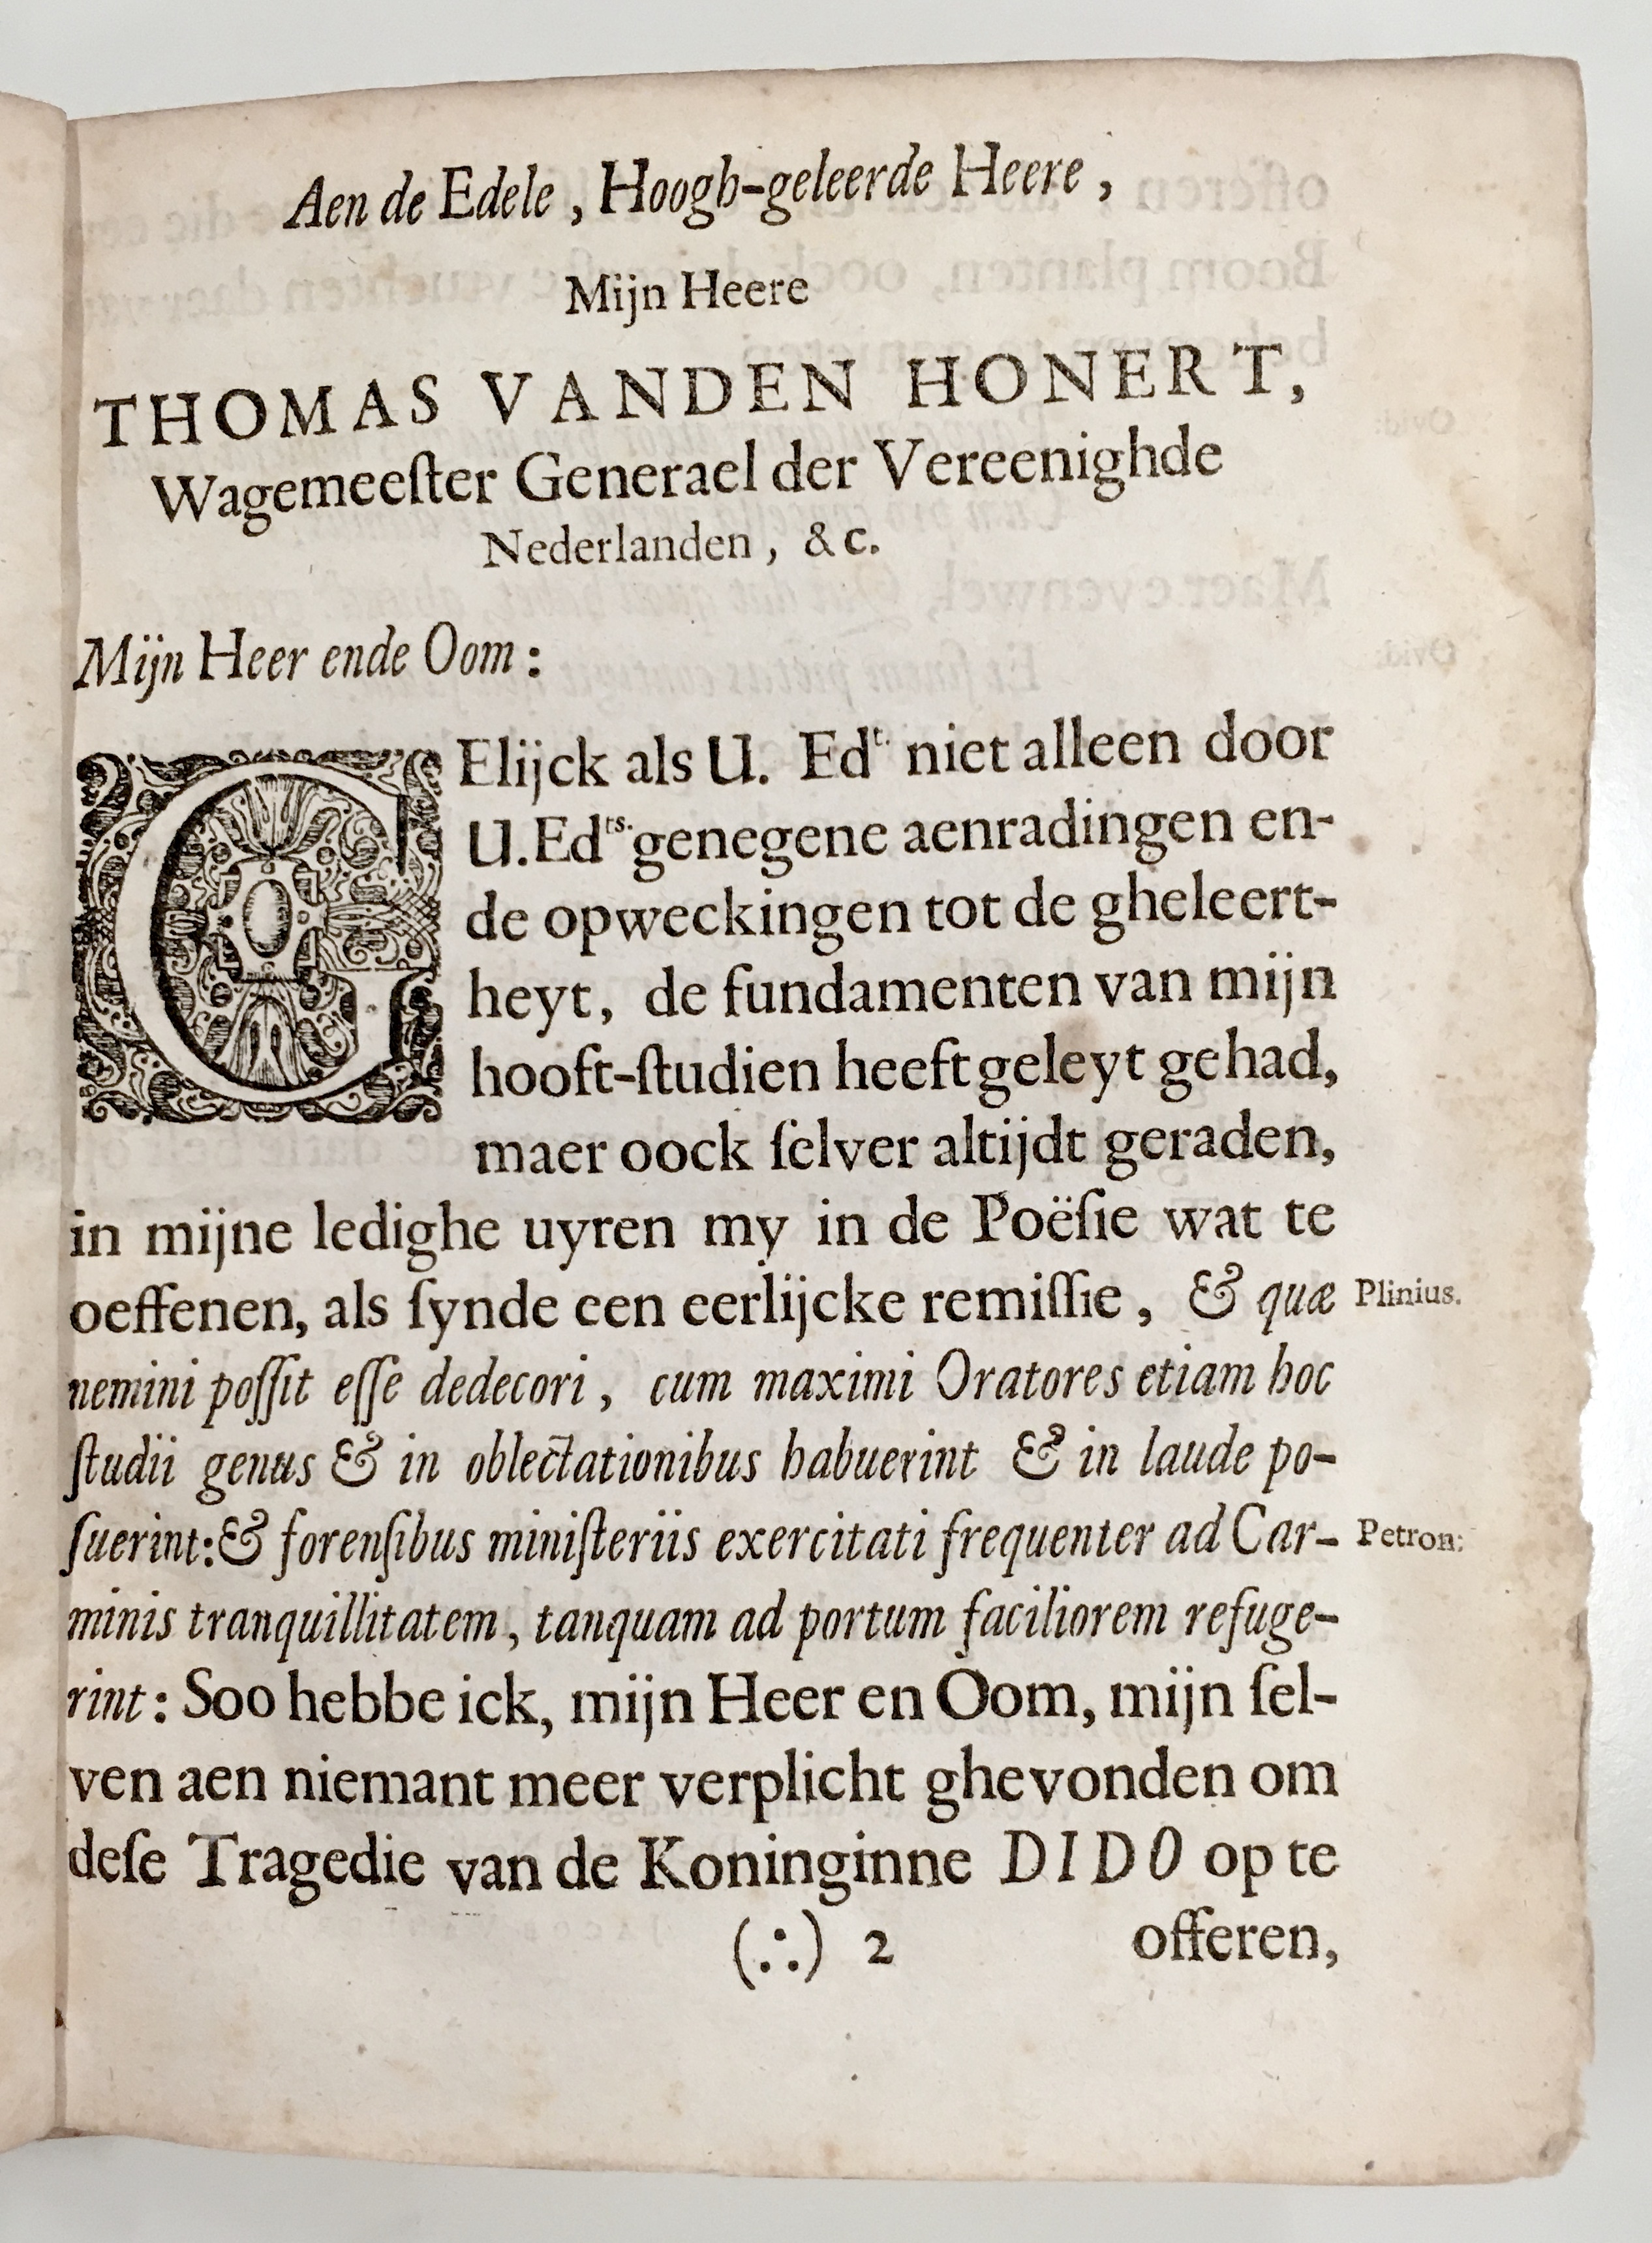 Aen de Edele, Hoogh-geleerde Heere,
Mijn Heere
THOMAS VANDEN HONERT,
Wagemeeſter Generael der Vereenighde
Nederlanden, &c.
Mijn Heer ende Oom:
GElijck als U. Edᵗ· niet alleen door
U.Edᵗˢ· genegene aenradingen en-
de opweckingen tot de gheleert-
heyt, de fundamenten van mijn
hooft-ſtudien heeft geleyt gehad,
maer oock ſelver altijdt geraden,
in mijne ledighe uyren my in de Poëſie wat te
oeffenen, als ſynde een eerlijcke remiſſie, & quæ Plinius.
nemini poſſit eſſe dedecori, cum maximi Oratores etiam hoc
ſtudii genus & in oblectationibus habuerint & in laude po-
ſuerint: & forenſibus miniſteriis exercitati frequenter ad Car- Petron:
minis tranquillitatem, tanquam ad portum faciliorem refuge-
rint: Soo hebbe ick, mijn Heer en Oom, mijn ſel-
ven aen niemant meer verplicht ghevonden om
deſe Tragedie van de Koninginne DIDO op te
(∴) 2 offeren,